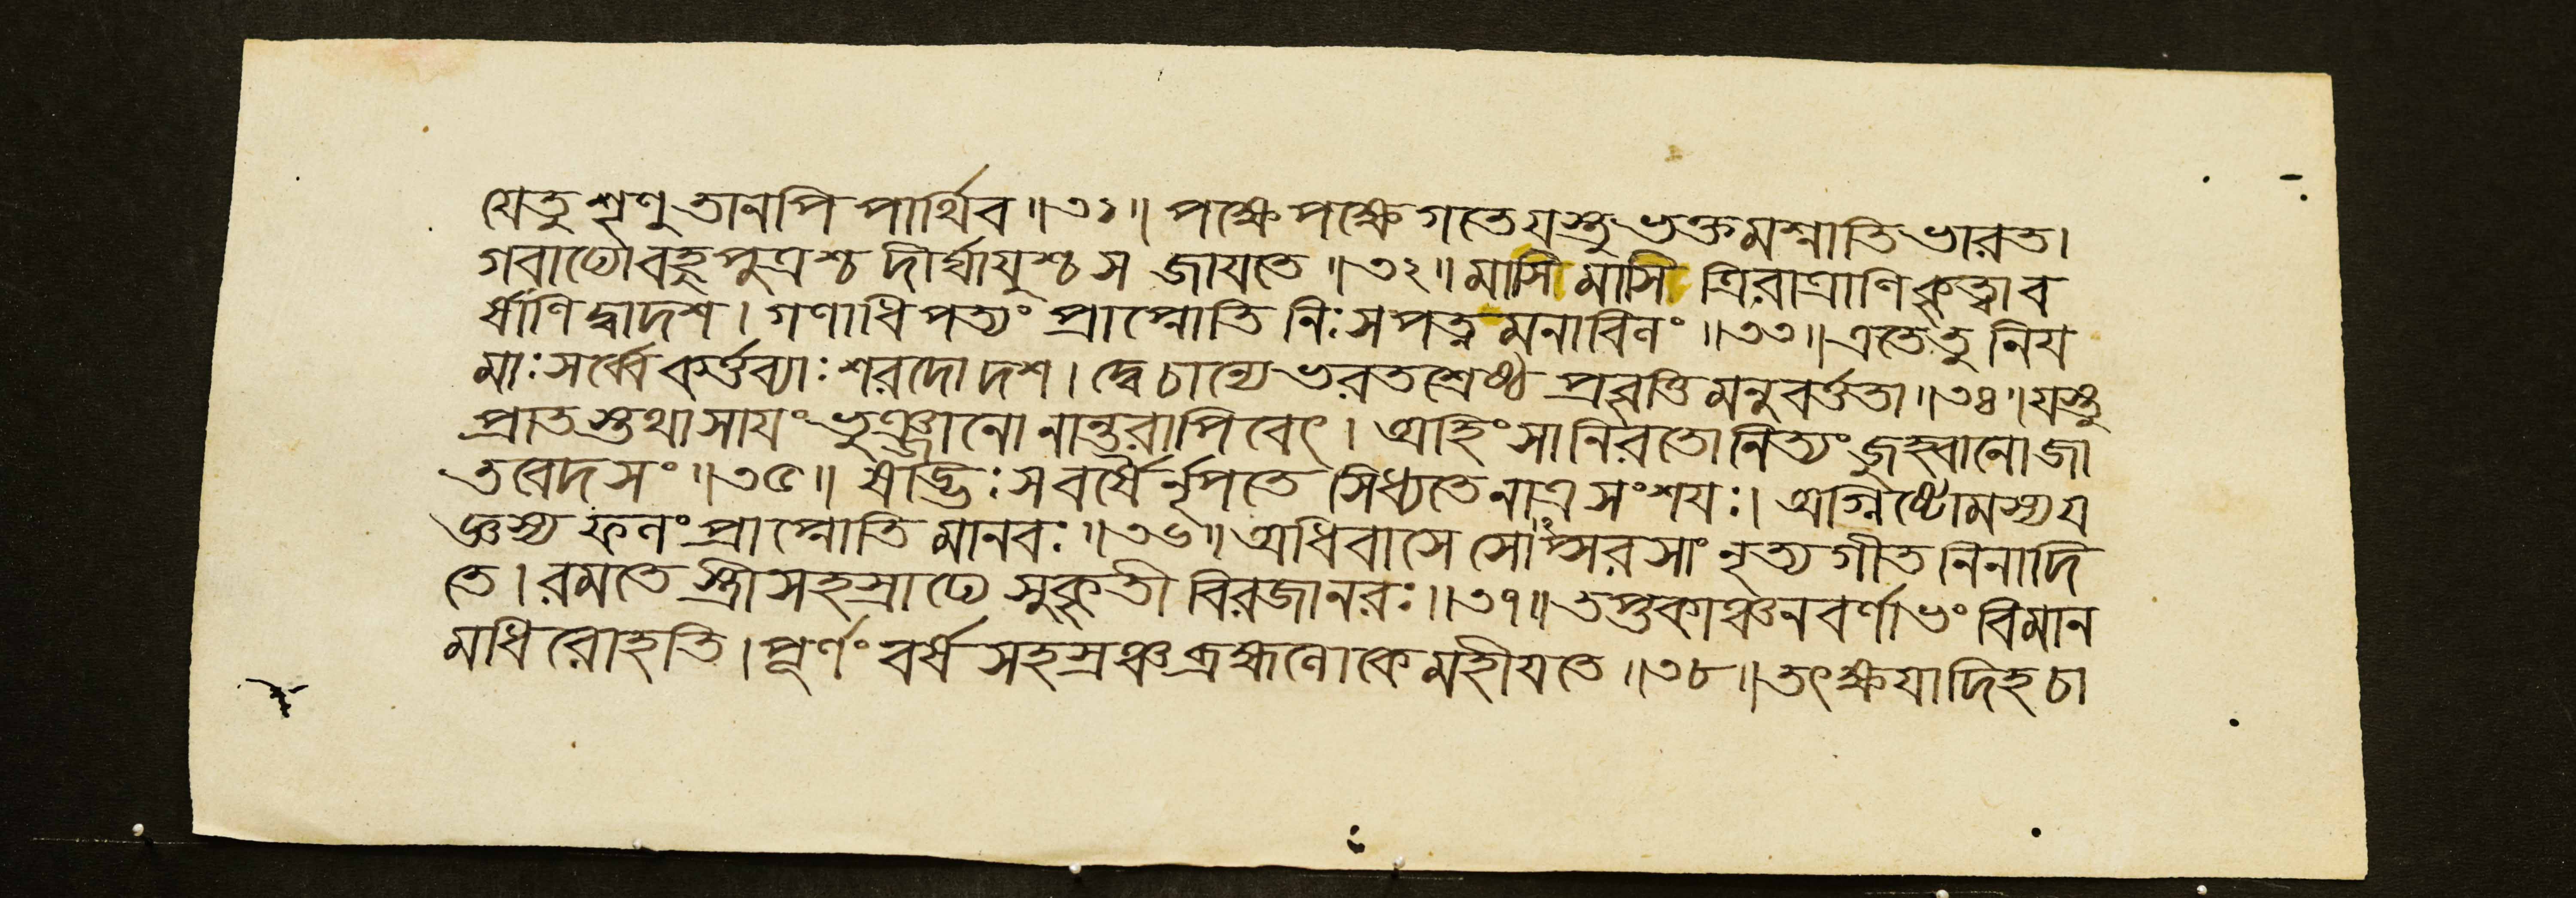 যেতু শৃণু তানপি পার্থিব ॥৩১॥ পক্ষে পক্ষে গতে যস্তু ভক্তমশ্নাতি ভারত।
গবাঢ্যো বহুপুত্রশ্চ দীর্ঘায়ুশ্চ স জাযতে ॥৩২॥ মাসি মাসি ত্রিরাত্রাণি কৃত্বা ব
র্ষাণি দ্বাদশ। গণাধিপত্যং প্রাপ্নোতি নিঃসপত্নমনাবিলং ॥৩৩॥ এতে তু নিয
মাঃ সর্ব্বে কর্ত্তব্যাঃ শরদো দশ। দ্বে চান্যে ভরতশ্রেষ্ঠ প্রবৃত্তিমনুবর্ত্ততা ॥৩৪॥ যস্তু
প্রাতস্তথা সাযং ভুঞ্জানো নান্তরা পিবেৎ। অহিংসানিরতো নিত্যং জুহ্বানো জা
তবেদসং ॥৩৫॥ ষড্ভিঃ স বর্ষৈর্নৃপতে সিধ্যতে নাত্র সংশযঃ। অগ্নিষ্টোমস্য য
জ্ঞস্য ফলং প্রাপ্নোতি মানবঃ ॥৩৬॥ অধিবাসে সোঽপ্সরসাং নৃত্যগীতনিনাদি
তে। রমতে স্ত্রীসহস্রাঢ্যে সুকৃতী বিরজা নরঃ ॥৩৭॥ তপ্তকাঞ্চনবর্ণাভং বিমান
মধিরোহতি। পূর্ণং বর্ষসহস্রঞ্চ ব্রহ্মলোকে মহীযতে ॥৩৮॥ তৎক্ষযাদিহ চা